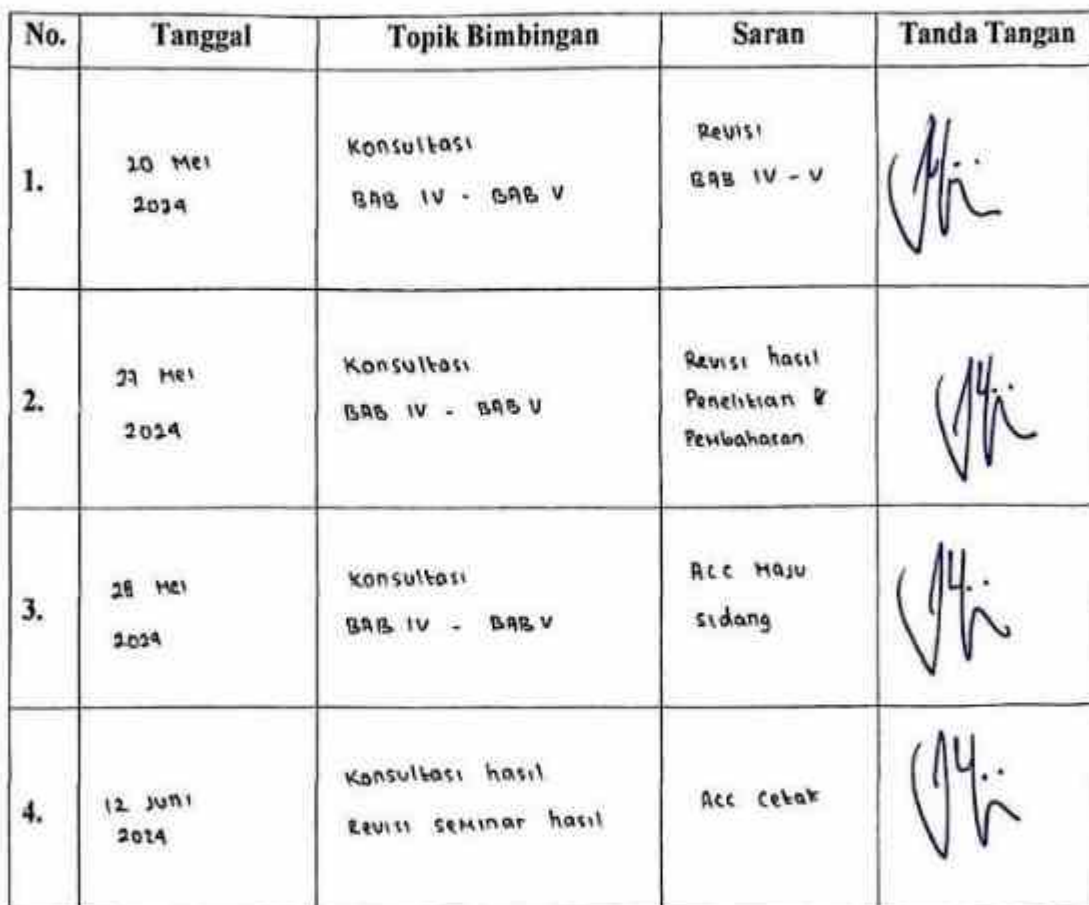 No. Tanggal Topik Bimbingan Saran Tanda Tangan
1.
20 Mei
2024
Konsultasi
BAB IV - BAB V
Revisi
BAB IV - V
2.
27 Mei
2024
Konsultasi
BAB IV - BAB V
Revisi hasil
Penelitian &
Pembahasan
3.
28 Mei
2024
Konsultasi
BAB IV - BAB V
Acc Maju
sidang
4.
12 Juni
2024
Konsultasi hasil
Revisi seminar hasil
Acc Cetak